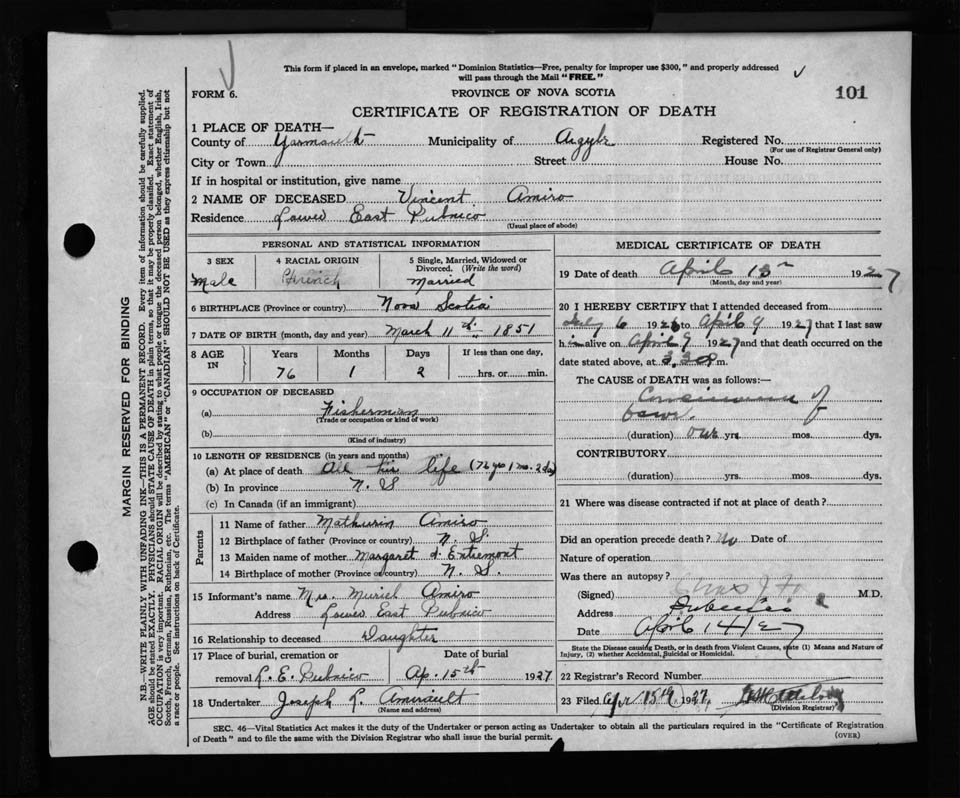 This form if placed in an envelope, marked "Dominion Statistics—Free, penalty for improper use $300," and properly addressed
will pass through the Mail "FREE."
FORM 6.
PROVINCE OF NOVA SCOTIA
101
CERTIFICATE OF REGISTRATION OF DEATH
1 PLACE OF DEATH—
County of Yarmouth Municipality of Argyle Registered No.
(For use of Registrar General only)
City or Town Street House No.
If in hospital or institution, give name
2 NAME OF DECEASED Vincent Amiro
Residence Lower East Pubnico
(Usual place of abode)
PERSONAL AND STATISTICAL INFORMATION
3 SEX 4 RACIAL ORIGIN 5 Single, Married, Widowed or
Divorced. (Write the word)
Male French Married
6 BIRTHPLACE (Province or country) Nova Scotia
7 DATE OF BIRTH (month, day and year) March 11th 1851
8 AGE IN Years Months Days If less than one day,
76 1 2 hrs. or min.
9 OCCUPATION OF DECEASED
(a) Fisherman
(Trade or occupation or kind of work)
(b)
(Kind of industry)
10 LENGTH OF RESIDENCE (in years and months)
(a) At place of death All his life (76 yrs 1 mo. 2 da)
(b) In province N. S
(c) In Canada (if an immigrant)
Parents
11 Name of father Mathurin Amiro
12 Birthplace of father (Province or country) N. S.
13 Maiden name of mother Margaret d'Entremont
14 Birthplace of mother (Province or country) N. S.
15 Informant's name Amiro
Address Lower East Pubnico
16 Relationship to deceased Daughter
17 Place of burial, cremation or Date of burial
removal L. E. Pubnico Ap. 15th 1927
18 Undertaker Joseph R. Amirault
(Name and address)
MEDICAL CERTIFICATE OF DEATH
19 Date of death April 13th 1927
(Month, day and year)
20 I HEREBY CERTIFY that I attended deceased from
July 6 1926 to April 9 1927 that I last saw
him alive on April 9 1927 and that death occurred on the
date stated above, at 3.30 P m.
The CAUSE of DEATH was as follows:—
of
(duration) One yrs. mos. dys.
CONTRIBUTORY
(duration) yrs. mos. dys.
21 Where was disease contracted if not at place of death?
Did an operation precede death? No Date of
Nature of operation
Was there an autopsy?
(Signed) M.D.
Address Pubnico
Date April 14/27
State the Disease causing Death, or in death from Violent Causes, state (1) Means and Nature of
Injury, (2) whether Accidental, Suicidal or Homicidal.
22 Registered Record Number
23 Filed Apr 15th 1927
(Division Registrar)
SEC. 46—Vital Statistics Act makes it the duty of the Undertaker or person acting as Undertaker to obtain all the particulars required in the "Certificate of Registration
of Death" and to file the same with the Division Registrar who shall issue the burial permit.
(OVER)
MARGIN RESERVED FOR BINDING
N.B.—WRITE PLAINLY WITH UNFADING INK—THIS IS A PERMANENT RECORD. Every item of information should be carefully supplied.
AGE should be stated EXACTLY. PHYSICIANS should STATE CAUSE OF DEATH in plain terms, so that it may be properly classified. Exact statement of
OCCUPATION is very important. RACIAL ORIGIN will be described by stating to what people or tongue the deceased person belonged, whether English, Irish,
Scotch, French, German, Russian, Ruthenian, etc. The terms "AMERICAN" or "CANADIAN" SHOULD NOT BE USED as they express citizenship but not
a race or people. See instructions on back of Certificate.